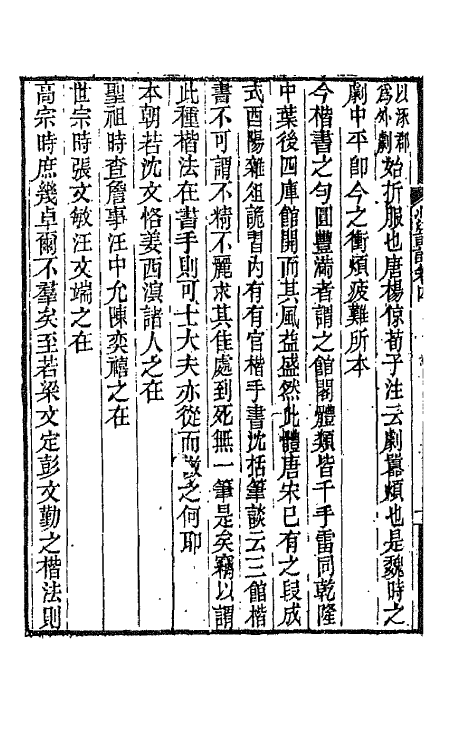 以涿郡爲外劇始折服也唐楊倞荀子注云劇囂煩也是魏時之
劇中平卽今之衝煩疲難所本
今楷書之勻圓豐滿者謂之館閣體類皆千手雷同乾隆
中葉後四庫館開而其風益盛然此體唐宋已有之段成
式酉陽雜俎詭習內有有官楷手書沈括筆談云三館楷
書不可謂不精不麗求其佳處到死無一筆是矣竊以謂
此種楷法在書手則可士大夫亦從而效之何耶
本朝若沈文恪姜西溟諸人之在
聖祖時查詹事汪中允陳奕禧之在
世宗時張文敏汪文端之在
高宗時庶幾卓爾不羣矣至若梁文定彭文勤之楷法則